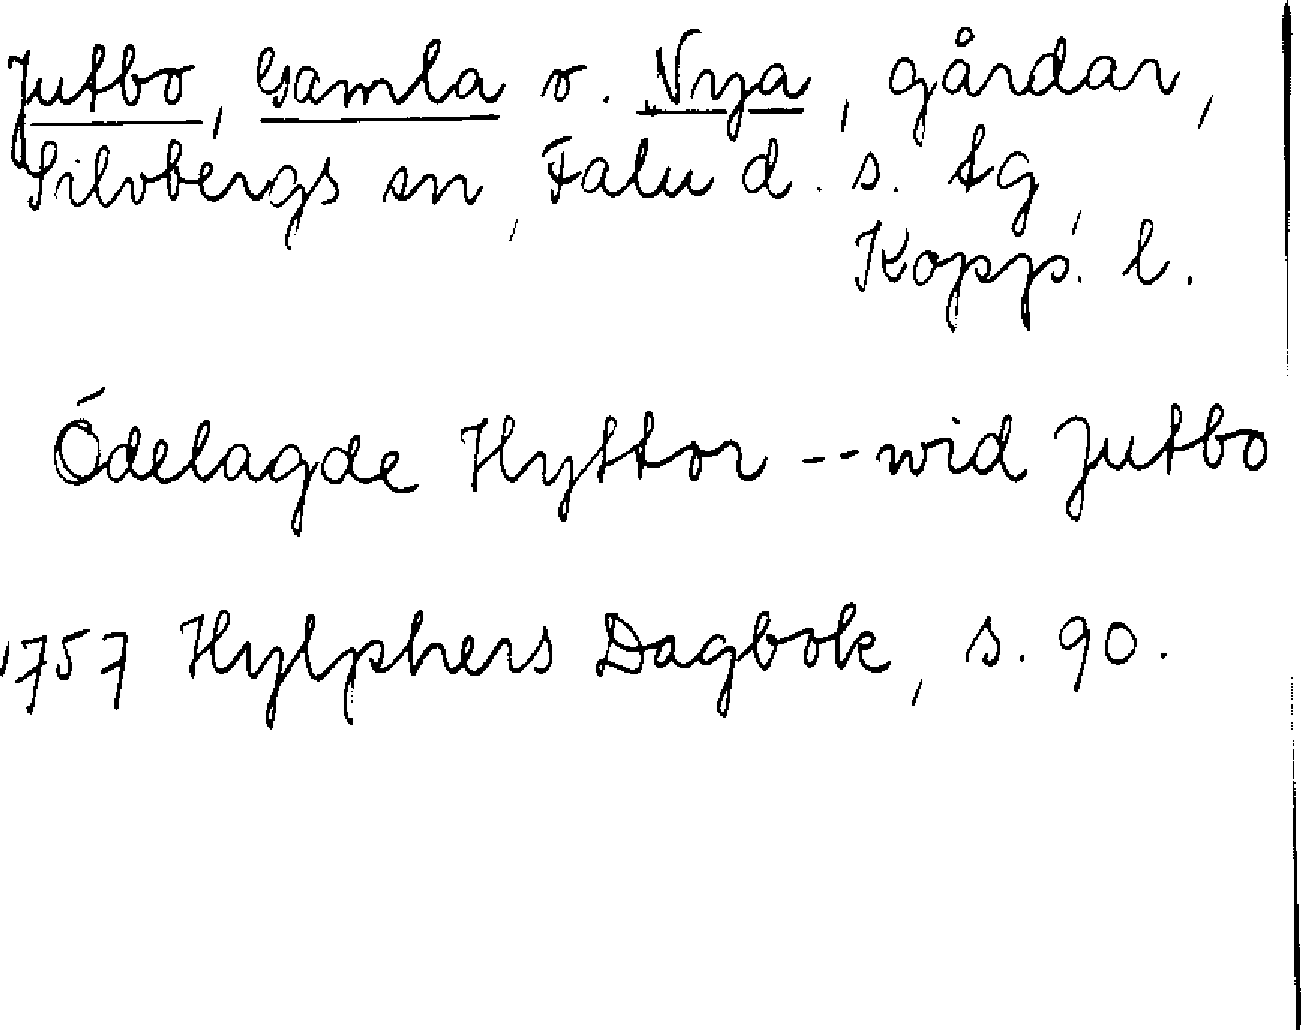 Jutbo, Gamla o. Nya, gårdar,
Silvbergs sn, Falu d. s. tg,
Kopp. l.
Ödelagde Hyttor -- wid Jutbo
1757 Hylphers Dagbok, s. 90.